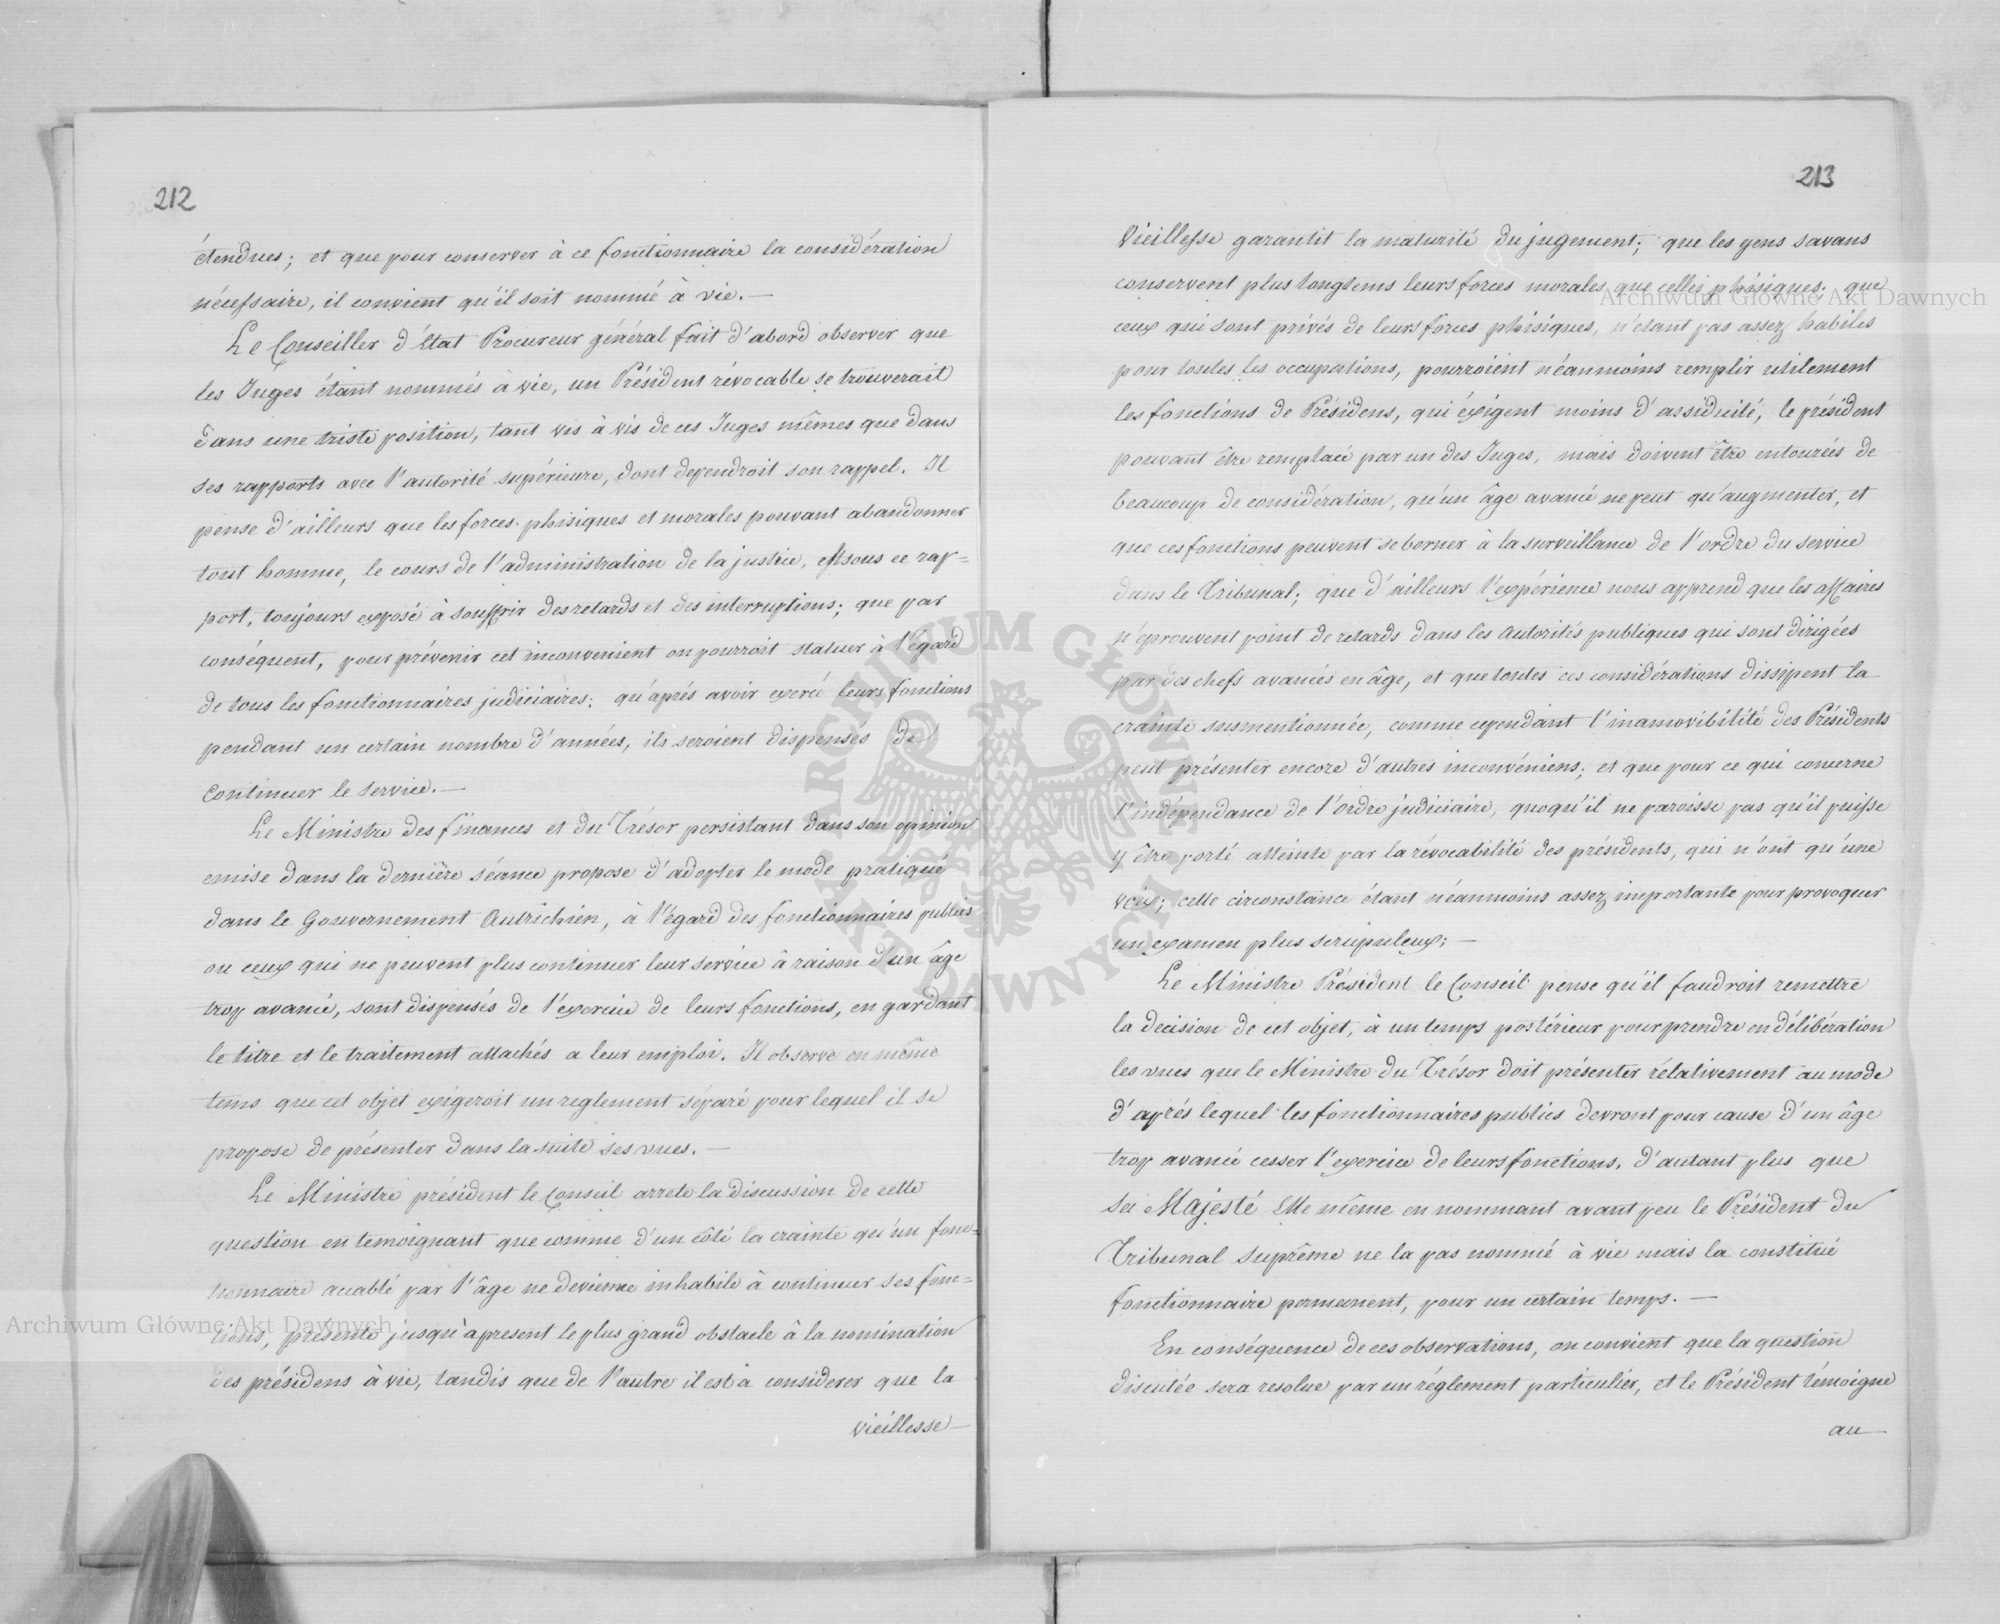 212
étendues; et que pour conserver à ce fonctionnaire la considération
nécessaire, il convient qu'il soit nommé à vie. —
Le Conseiller d'État Procureur général fait d'abord observer que
les Juges étant nommés à vie, un Président révocable se trouverait
dans une triste position, tant vis à vis de ces Juges mêmes que dans
ses rapports avec l'autorité supérieure, dont dependroit son rappel. Il
pense d'ailleurs que les forces phisiques et morales pouvant abandonner
tout homme, le cours de l'administration de la justice, est sous ce rap=
port, toujours exposé à souffrir des retards et des interruptions; que par
conséquent, pour prévenir cet inconvenient on pourroit statuer à l'égard
de tous les fonctionnaires judiciaires; qu'aprés avoir exercé leurs fonctions
pendant un certain nombre d'années, ils seroient dispensés de
continuer le service. —
Le Ministre des finances et du Trésor persistant dans son opinion
emise dans la dernière séance propose d'adopter le mode pratiqué
dans le Gouvernement Autrichien, à l'égard des fonctionnaires publics
ou ceux qui ne peuvent plus continuer leur service à raison d'un âge
trop avancé, sont dispensés de l'exercice de leurs fonctions, en gardant
le titre et le traitement attachés a leur emploi. Il observe en même
tems que cet objet exigeroit un reglement séparé pour lequel il se
propose de présenter dans la suite ses vues. —
Le Ministre président le Conseil arrete la discussion de cette
question en temoignant que comme d'un côté la crainte qu'un fonc=
tionnaire accablé par l'âge ne devienne inhabile à continuer ses fonc=
tions, présente jusqu'apresent le plus grand obstacle à la nomination
des présidens à vie, tandis que de l'autre il est à considerer que la
vieillesse —
213
Vieillesse garantit la maturité du jugement; que les gens savans
conservent plus longtems leurs forces morales, que celles phisiques; que
ceux qui sont privés de leurs forces phisiques, n'etant pas assez habiles
pour toutes les occupations, pourroient néanmoins remplir utilement
les fonctions de Présidens, qui éxigent moins d'assiduité; le président
pouvant être remplacé par un des Juges, mais doivent être entourées de
beaucoup de considération, qu'un âge avancé ne peut qu'augmenter, et
que ces fonctions peuvent se borner à la surveillance de l'ordre du service
dans le Tribunal; que d'ailleurs l'expérience nous apprend que les affaires
n'éprouvent point de retards dans les Autorités publiques qui sont dirigées
par des chefs avancés en âge, et que toutes ces considérations dissipent la
crainte susmentionnée, comme cependant l'inamovibilité des Présidents
peut présenter encore d'autres inconvéniens; et que pour ce qui concerne
l'indépendance de l'ordre judiciaire, quoqu'il ne paroisse pas qu'il puisse
y être porté atteinte par la révocabilité des présidents, qui n'ont qu'une
voix; cette circonstance étant néanmoins assez importante pour provoquer
un examen plus scrupuleux; —
Le Ministre Président le Conseil pense qu'il faudroit remettre
la decision de cet objet, à un temps postérieur pour prendre en délibération
les vues que le Ministre du Trésor doit présenter rélativement au mode
d'aprés lequel les fonctionnaires publics devront pour cause d'un âge
trop avancé cesser l'exercice de leurs fonctions, d'autant plus que
Sa Majesté Elle même en nommant avant peu le Président du
Tribunal Suprême ne la pas nommé à vie mais la constitué
fonctionnaire permanent, pour un certain temps. —
En conséquence de ces observations, on convient que la question
discutée sera resolue par un réglement particulier, et le Président témoigne
au —
Archiwum Główne Akt Dawnych
Archiwum Główne Akt Dawnych
ARCHIWUM GŁÓWNE AKT DAWNYCH